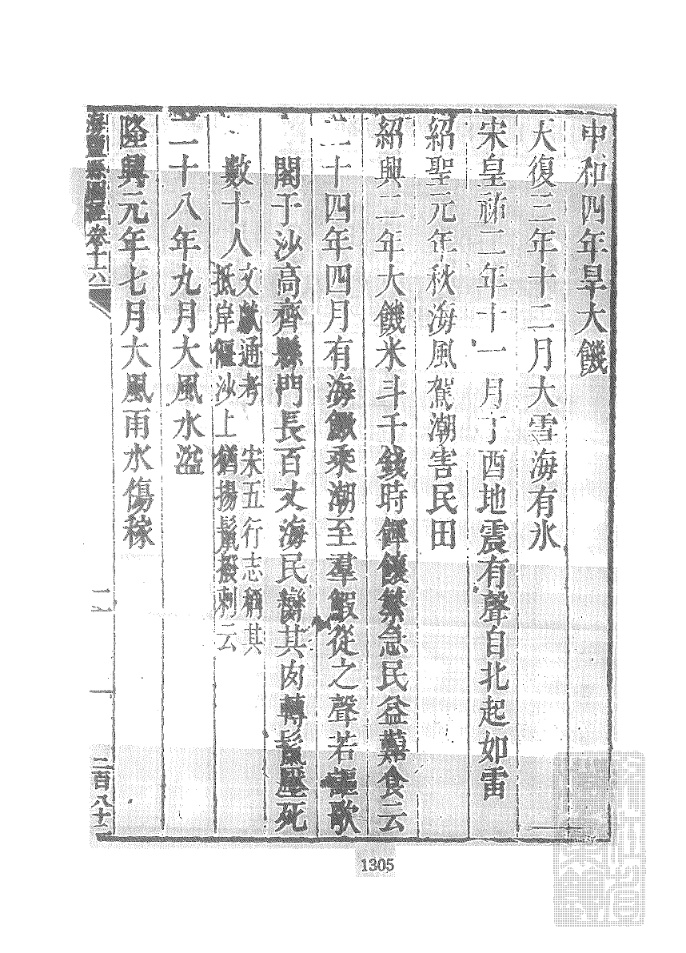 中和四年旱大饑
天復三年十二月大雪海有氷
宋皇祐二年十一月丁酉地震有聲自北起如雷
紹聖元年秋海風駕潮害民田
紹興二年大饑米斗千錢時餫餽繁急民益艱食云
二十四年四月有海鰍乘潮至羣鰕從之聲若謳歌
閣于沙高齊縣門長百丈海民臠其肉轉鬣壓死
數十人文獻通考 宋五行志稱其
抵岸偃沙上猶揚鬣撥刺云
二十八年九月大風水溢
隆興元年七月大風雨水傷稼
海鹽縣圖經卷十六
二百八十二
1305